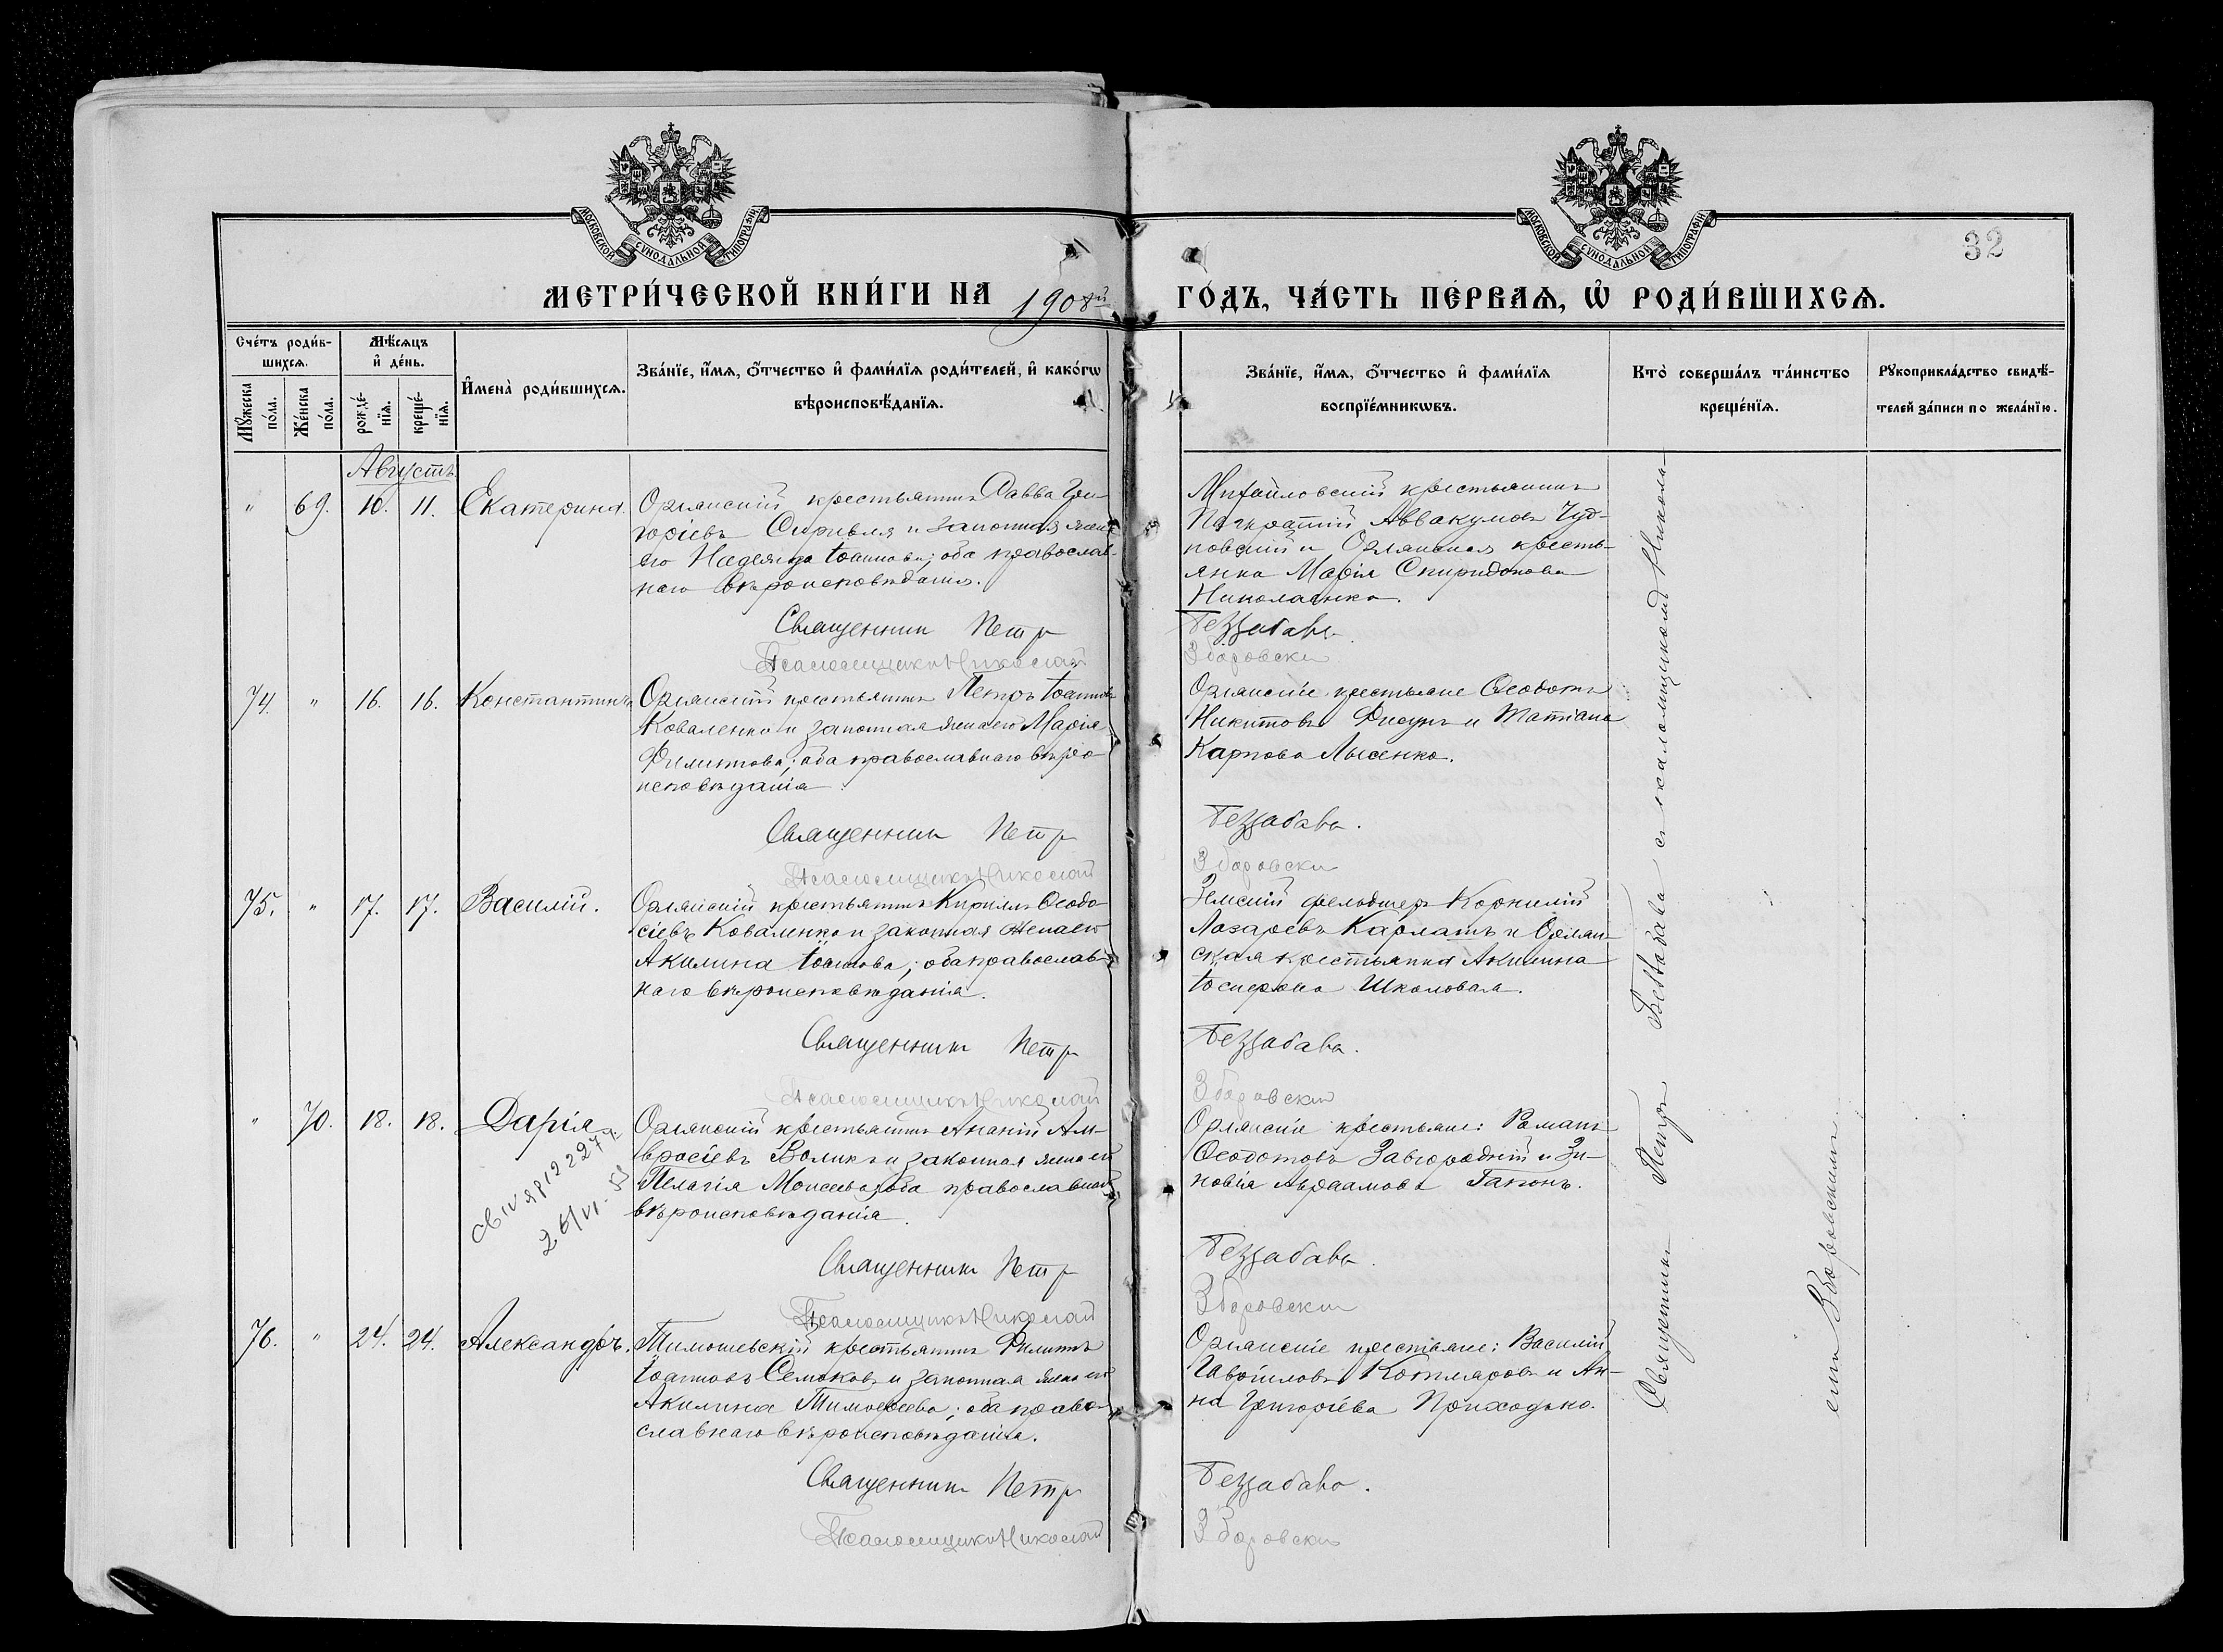 МОСКОВСКОЙ СУНОДАЛЬНОЙ ТИПОГРАФІИ
МОСКОВСКОЙ СУНОДАЛЬНОЙ ТИПОГРАФІИ
32
МЕТРИ́ЧЕСКОЙ КНИ́ГИ НА 1908й ГО́ДЪ, ЧА́СТЬ ПЕ́РВАѦ, Ѡ҆ РОДИ́ВШИХСѦ.
Сче́тъ роди́в-
шихсѧ.
Мꙋжеска по́ла.
Же́нска по́ла.
Мѣ́сѧцъ
и҆ де́нь.
рожде́-
нїѧ.
креще́-
нїѧ.
И҆мена̀ роди́вшихсѧ.
Зва́нїе, и҆́мѧ, ѻ҆́тчество и҆ фами́лїѧ роди́телей, и҆ како́гѡ
вѣроисповѣ́данїѧ.
Зва́нїе, и҆́мѧ, ѻ҆́тчество и҆ фами́лїѧ
воспрїе́мникѡвъ.
Кто̀ соверша́лъ та́инство
креще́нїѧ.
Рꙋкоприкла́дство свидѣ́-
телей за́писи по жела́нїю.
Августъ
" 69. 10. 11. Екатерина.
Орлянскій крестьянинъ Савва Гри-
горіевъ и законная жена
его Надежда Іоаннова; оба православ-
наго вѣроисповѣданія.
Священникъ Петръ
Псаломщикъ Николай
Михайловскій крестьянинъ
Панкратій Аввакумовъ Чуд-
новскій и Орлянская кресть-
янка Марія Спиридонова
Николаенко.
Беззабава
Зборовскій
74. " 16. 16. Константинъ
Орлянскій крестьянинъ Петръ Іоанновъ
Коваленко и законная жена его Марія
Филиппова; оба православнаго вѣро-
исповѣданія.
Священникъ Петръ
Псаломщикъ Николай
Орлянскіе крестьяне Ѳеодотъ
Никитовъ Фисунъ и Татіана
Карпова Лысенко.
Беззабава.
Зборовскій
75. " 17. 17. Василій.
Орлянскій крестьянинъ Кириллъ Ѳеодо-
сіевъ Коваленко и законная жена его
Акилина Іоаннова; оба православ-
наго вѣроисповѣданія.
Священникъ Петръ
Псаломщикъ Николай
Земскій фельдшеръ Корнилій
Лазаревъ Карлашъ и Орлян-
ская крестьянка Акилина
Іосифова Шкловала.
Беззабава.
Зборовскій
" 70. 18. 18. Дарія
26/VI-53
Орлянскій крестьянинъ Ананій Ам-
вросіевъ Воликъ и законная жена его
Пелагія Моисеева; оба православнаго
вѣроисповѣданія.
Священникъ Петръ
Псаломщикъ Николай
Орлянскіе крестьяне: Романъ
Ѳеодотовъ Завгородній и Зи-
новія Авраамова Гапонъ.
Беззабава.
Зборовскій
76. " 24. 24. Александръ.
Тимошевскій крестьянинъ Филиппъ
Іоанновъ Семоковъ и законная жена его
Акилина Тимофеева; оба право-
славнаго вѣроисповѣданія.
Священникъ Петръ
Псаломщикъ Николай
Орлянскіе крестьяне: Василій
Гавріиловъ Котляровъ и Ан-
на Григоріева Приходько.
Беззабава.
Зборовскій
Священникъ Петръ Беззабава съ псаломщикомъ Никола-
емъ Зборовскимъ